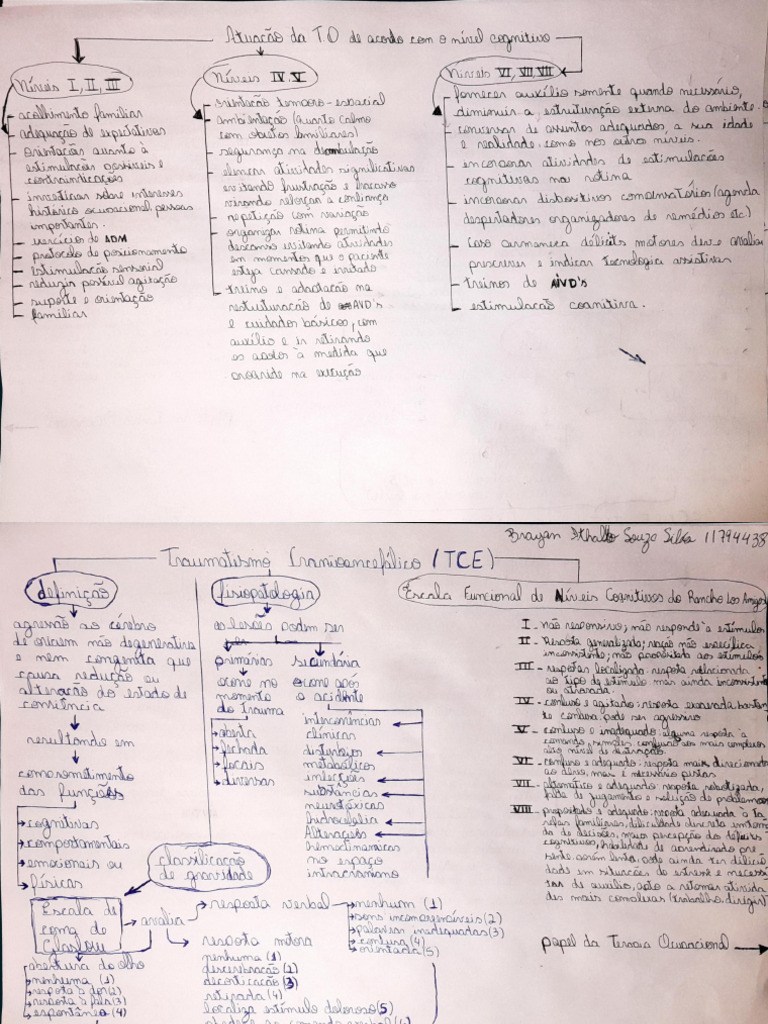 Atuação da T.O de acordo com o nível cognitivo
Níveis I, II, III
- acolhimento familiar
- adequação de expectativas
- orientações quanto à
estimulações possíveis e
contraindicações
- investigar sobre interesses
histórico ocupacional, pessoas
importantes.
- exercícios de ADM
- protocolo de posicionamento
- estimulação sensorial
- reduzir possível agitação
- suporte e orientação
- familiar
Níveis IV, V
- orientação temporo-espacial
- ambientação (quarto calmo
com objetos familiares)
- segurança na deambulação
- elencar atividades significativas
evitando frustração e fracasso
visando reforçar a confiança
- repetição com variação
- organizar rotina permitindo
descanso evitando atividades
em momentos que o paciente
esteja cansado e irritado
- treino e adaptação na
restruturação de AVD's
e cuidados básicos, com
auxílio e ir retirando
os apoios à medida que
progride na execução
Níveis VI, VII, VIII
- fornecer auxílio somente quando necessário,
diminuir a estruturação externa do ambiente.
- conversar de assuntos adequados, a sua idade
e realidade. como nos outros níveis.
- encorporar atividades de estimulações
cognitivas na rotina
- incorporar dispositivos compensatórios (agenda
despertadores organizadores de remédios etc.)
- Caso permaneça déficits motores deve avaliar
prescrever e indicar tecnologia assistivas
- treinos de AIVD's
- estimulação cognitiva.
Brayan Ithallo Souza Silva 11794438
Traumatismo Cranioencefálico (TCE)
definição
agressão ao cérebro
de origem não degenerativa
e nem congênita que
causa redução ou
alteração do estado de
consciência
resultando em
comprometimento
das funções
cognitivas
comportamentais
emocionais ou
físicas
fisiopatologia
as lesões podem ser
primárias
ocorre no
momento
do trauma
aberta
fechada
focais
diversas
secundária
ocorre após
o acidente
intercorrências
clínicas
distúrbios
metabólicos
infecções
substâncias
neurotóxicas
hidrocefalia
Alterações
hemodinâmicas
no espaço
intracraniano
classificação
de gravidade
Escala de
coma de
Glasgow
avalia
resposta verbal
nenhum (1)
sons incompreensíveis (2)
palavras inadequadas (3)
confusa (4)
orientada (5)
resposta motora
nenhuma (1)
descerebração (2)
decorticação (3)
retirada (4)
localiza estímulo doloroso (5)
abertura do olho
nenhuma (1)
resposta à dor (2)
resposta à fala (3)
espontâneo (4)
Escala Funcional de Níveis Cognitivos do Rancho Los Amigos
I - Não responsivo; não responde à estímulos
II - Resposta generalizada; reação não específica
inconsistente; não proposital aos estímulos
III - respostas localizada: resposta relacionada
ao tipo de estímulo mas ainda inconsistente
ou atrasada.
IV - confuso e agitado: resposta exacerbada, bastante
confusa, pode ser agressivo
V - confuso e inadequado: alguma resposta a
comandos simples, confusão com mais complexos
alto nível de distração.
VI - confuso e adequado: resposta mais direcionada
ao alvo, mas é necessário pistas
VII - automático e adequado: resposta robotizada,
falha de julgamento e solução de problemas
VIII - proposital e adequado: resposta adequada à ta
refas familiares, dificuldade discreta
da de decisões, maior percepção dos déficits
cognitivos, habilidade de aprendizado pre
sente, porém lenta, pode ainda ter dificul
dade em situações de estresse e necessi
tar de auxílio, apto a retomar ativida
des mais complexas (trabalho, dirigir)
papel da Terapia Ocupacional